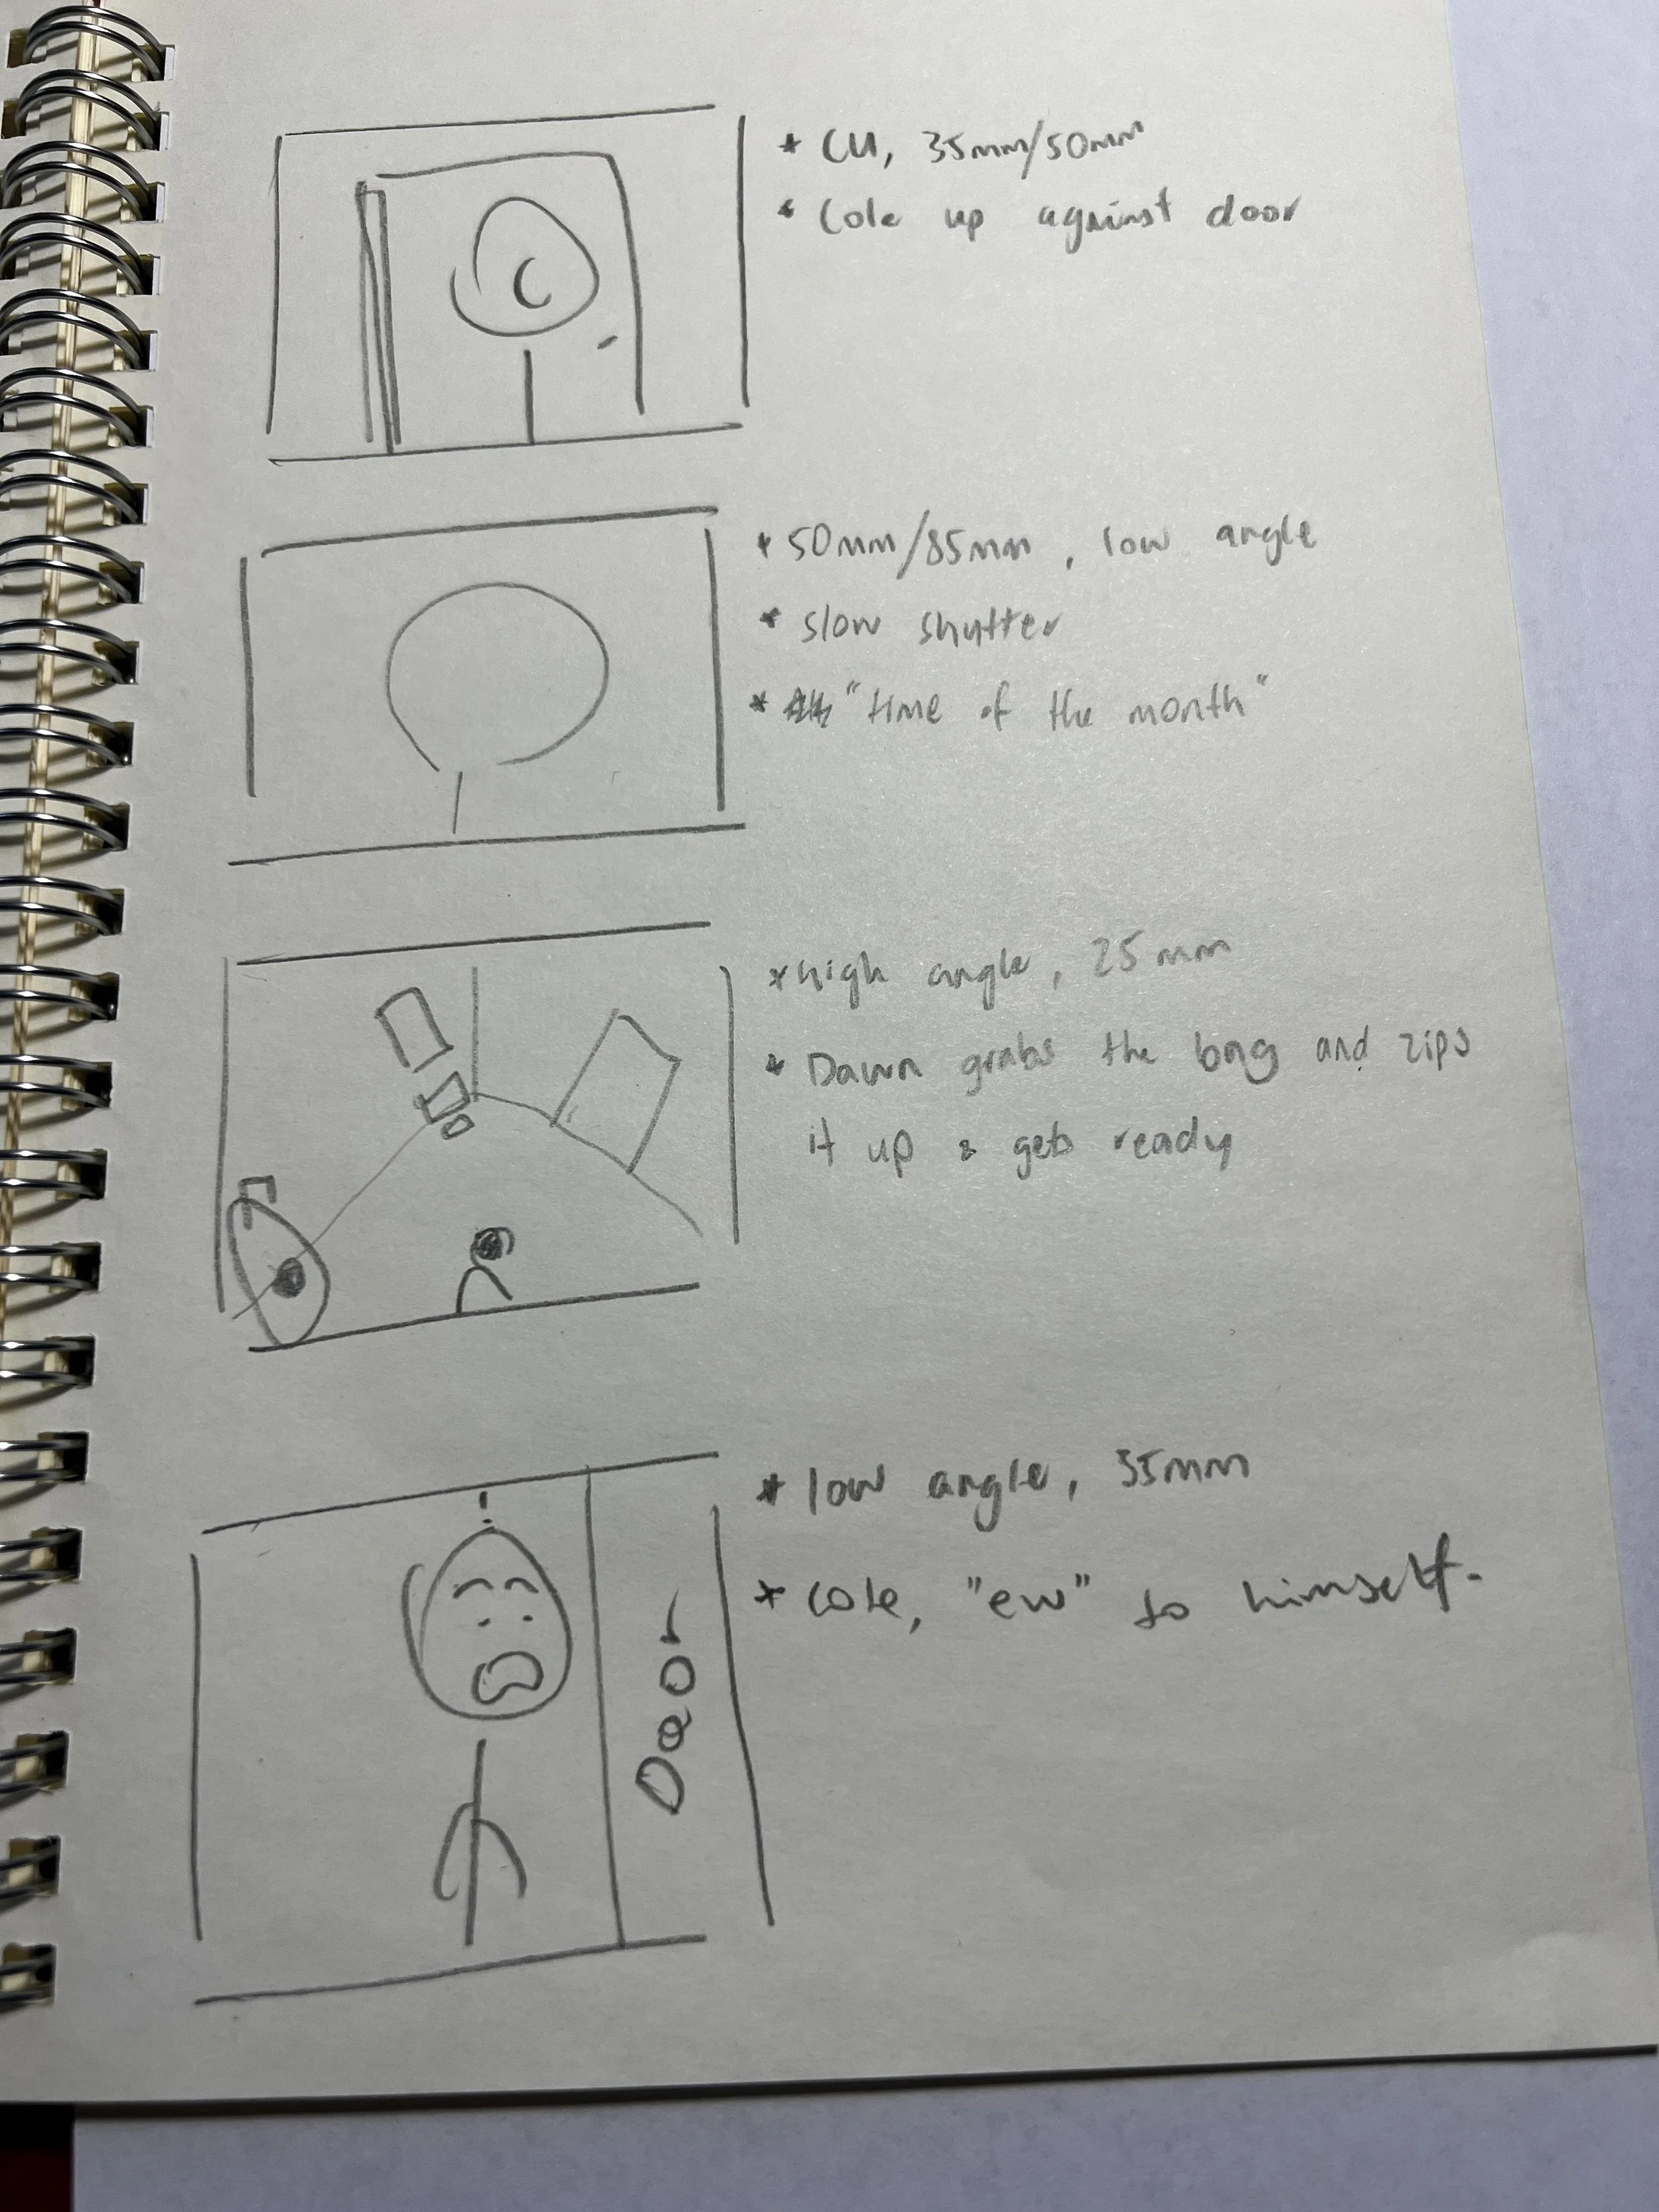 * CU, 35mm/50mm
* Cole up against door
C
* 50mm/85mm, low angle
* slow shutter
* "time of the month"
* high angle, 25mm
* Dawn grabs the bag and zips
it up & gets ready
* low angle, 35mm
* Cole, "ew" to himself.
Door